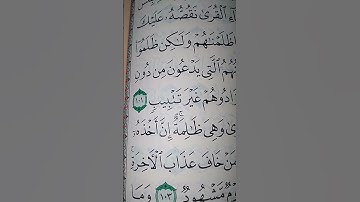 ءِ ٱلْقُرَىٰ نَقُصُّهُۥ عَلَيْكَ
ظَلَمْنَٰهُمْ وَلَٰكِن ظَلَمُوٓا۟
ٱلَّتِى يَدْعُونَ مِن دُونِ
زَادُوهُمْ غَيْرَ تَتْبِيبٍ ١٠١
وَهِىَ ظَٰلِمَةٌ إِنَّ أَخْذَهُۥٓ
مَنْ خَافَ عَذَابَ ٱلْءَاخِرَةِ
مَّشْهُودٌ ١٠٣ وَمَا